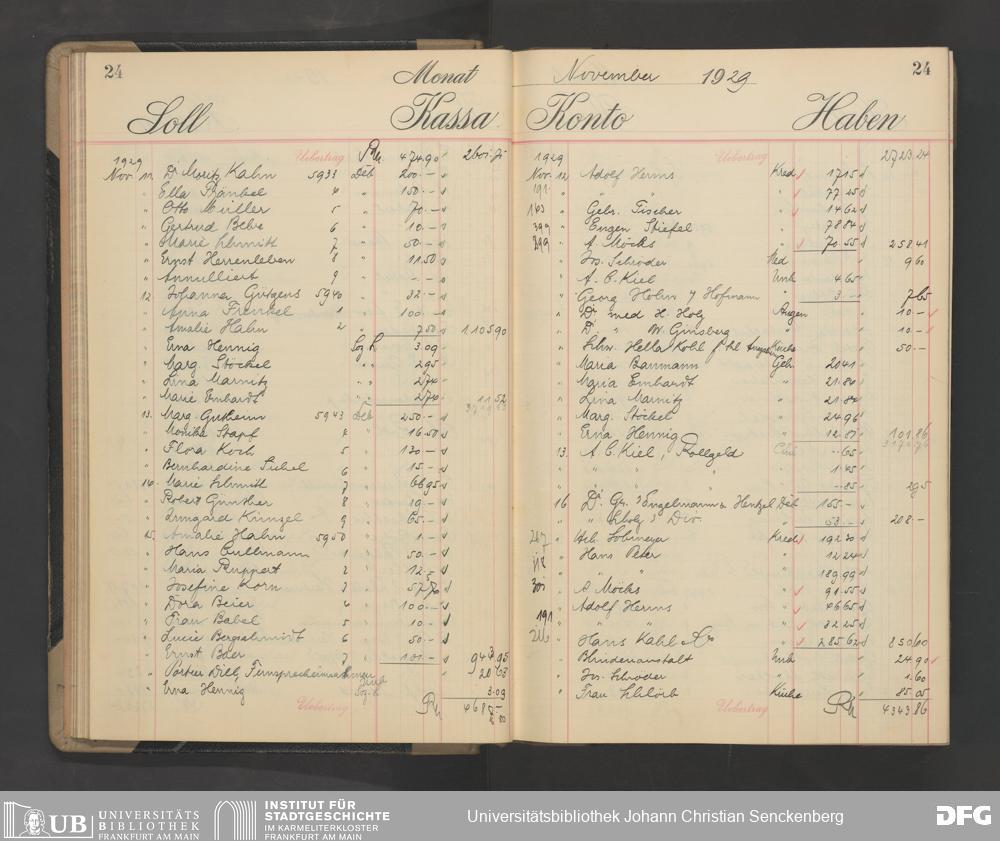 24 Monat
Soll Kassa
Uebertrag RM 474.90 2601.75
1929
Nov. 11 Dr Moritz Kahn 5933 Deb 200.-
" Ella Fränkel 4 " 150.-
" Otto Müller 5 " 70.-
" Gertrud 6 " 10.-
" Marie Schmitt 7 " 50.-
" Ernst Herrenleben 8 " 11.50
" Annulliert 9 " -.-
12 Johanna 5940 " 32.-
" Anna Frenkel 1 " 100.-
" Amalie Hahn 2 " 7.50 1105.90
" Erna Hennig 3.09
" Marg. Stöckel " " 2.95
" Lina Marnitz " " 2.74
" Marie Emhardt " " 2.74 11.52
13. Marg. 5943 Deb 250.-
" Monika Stapf 4 " 16.50
" Flora Koch 5 " 120.-
" Bernhardine 6 " 15.-
" Marie Schmitt 7 " 66.95
" Robert Günther 8 " 19.-
" Irmgard Künzel 9 " 65.-
15. Amalie Hahn 5950 " 1.-
" Hans Cullmann 1 " 50.-
" Maria Ruppert 2 "
" Josefine Korn 3 "
" Dora Beier 4 " 100.-
" Frau Babel 5 " 10.-
" Lucie Bergschmidt 6 " 50.-
" Ernst Baer 7 " 101.-
" Portier 20.03
" Erna Hennig 3.09
Uebertrag RM
November 1929 24
Konto Haben
1929 Uebertrag 2723.24
Nov. 12 Adolf Herms Kred 17.15
191. " " " " 77.25
163 " Gebr. Fischer " 14.62
399 " Eugen Stiefel " 78.84
299 " A. Möchs " 70.55 258.41
" Jos. Schroder 9.60
" A. C. Kiel Unk 4.65
" Georg Holm & Hofmann " 3.- 7.65
" Dr. med H. Holz Augen 10.-
" Dr. " W. Ginsberg " 10.-
" Schw. Hella Kohl Küche 50.-
" Maria Baumann Geh. 20.41
" Maria Emhardt " 21.84
" Lina Marnitz " 21.84
" Marg. Stöckel " 24.96
" Erna Hennig " 101.86
13. A. C. Kiel, Rollgeld -.65
" " " " 1.45
" " " " -.85 2.95
16 Dr. Gr. Engelmann & Hentzel Deb 155.-
" " Scholz 53.- 208.-
Kred 19.20
" Hans Peter " 12.24
" " " 189.99
301 " A. Möchs " 91.55
191 " Adolf Herms " 46.65
" " " 32.25
" Hans Kahl & Co " 850.60
" Blindenanstalt Unk 24.90
" Jos. Schroder " 1.60
" Frau Schlörb Küche 85.05
Uebertrag RM 4343.86
UB UNIVERSITÄTS
BIBLIOTHEK
FRANKFURT AM MAIN
INSTITUT FÜR
STADTGESCHICHTE
IM KARMELITERKLOSTER
FRANKFURT AM MAIN
Universitätsbibliothek Johann Christian Senckenberg
DFG